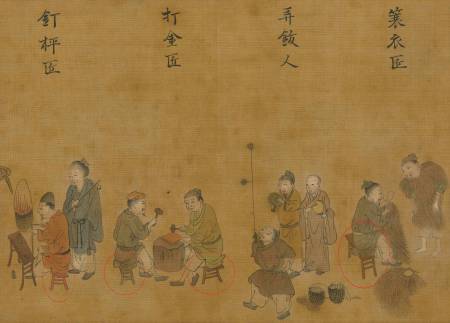 簑衣匠
弄鈸人
打金匠
釘枰匠